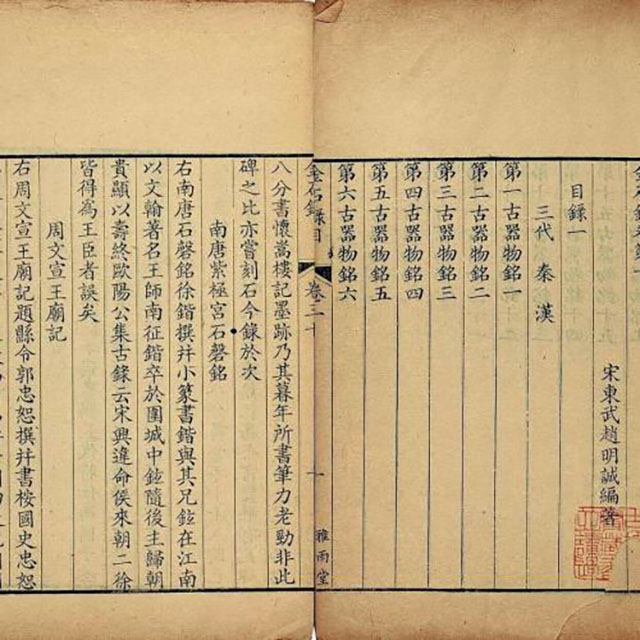 宋東武趙明誠編著
目錄一
三代 秦 漢
第一古器物銘一
第二古器物銘二
第三古器物銘三
第四古器物銘四
第五古器物銘五
第六古器物銘六
金石錄 卷三十
雅雨堂
八分書懷嵩樓記墨跡乃其暮年所書筆力老勁非此
碑之比亦嘗刻石今錄於次
南唐紫極宮石磬銘
右南唐石磬銘徐鍇撰幷小篆書鍇與其兄鉉在江南
以文翰著名王師南征鍇卒於圍城中鉉隨後主歸朝
貴顯以壽終歐陽公集古錄云宋興違命侯來朝二徐
皆得為王臣者誤矣
周文宣王廟記
右周文宣王廟記題縣令郭忠恕撰幷書桉國史忠恕